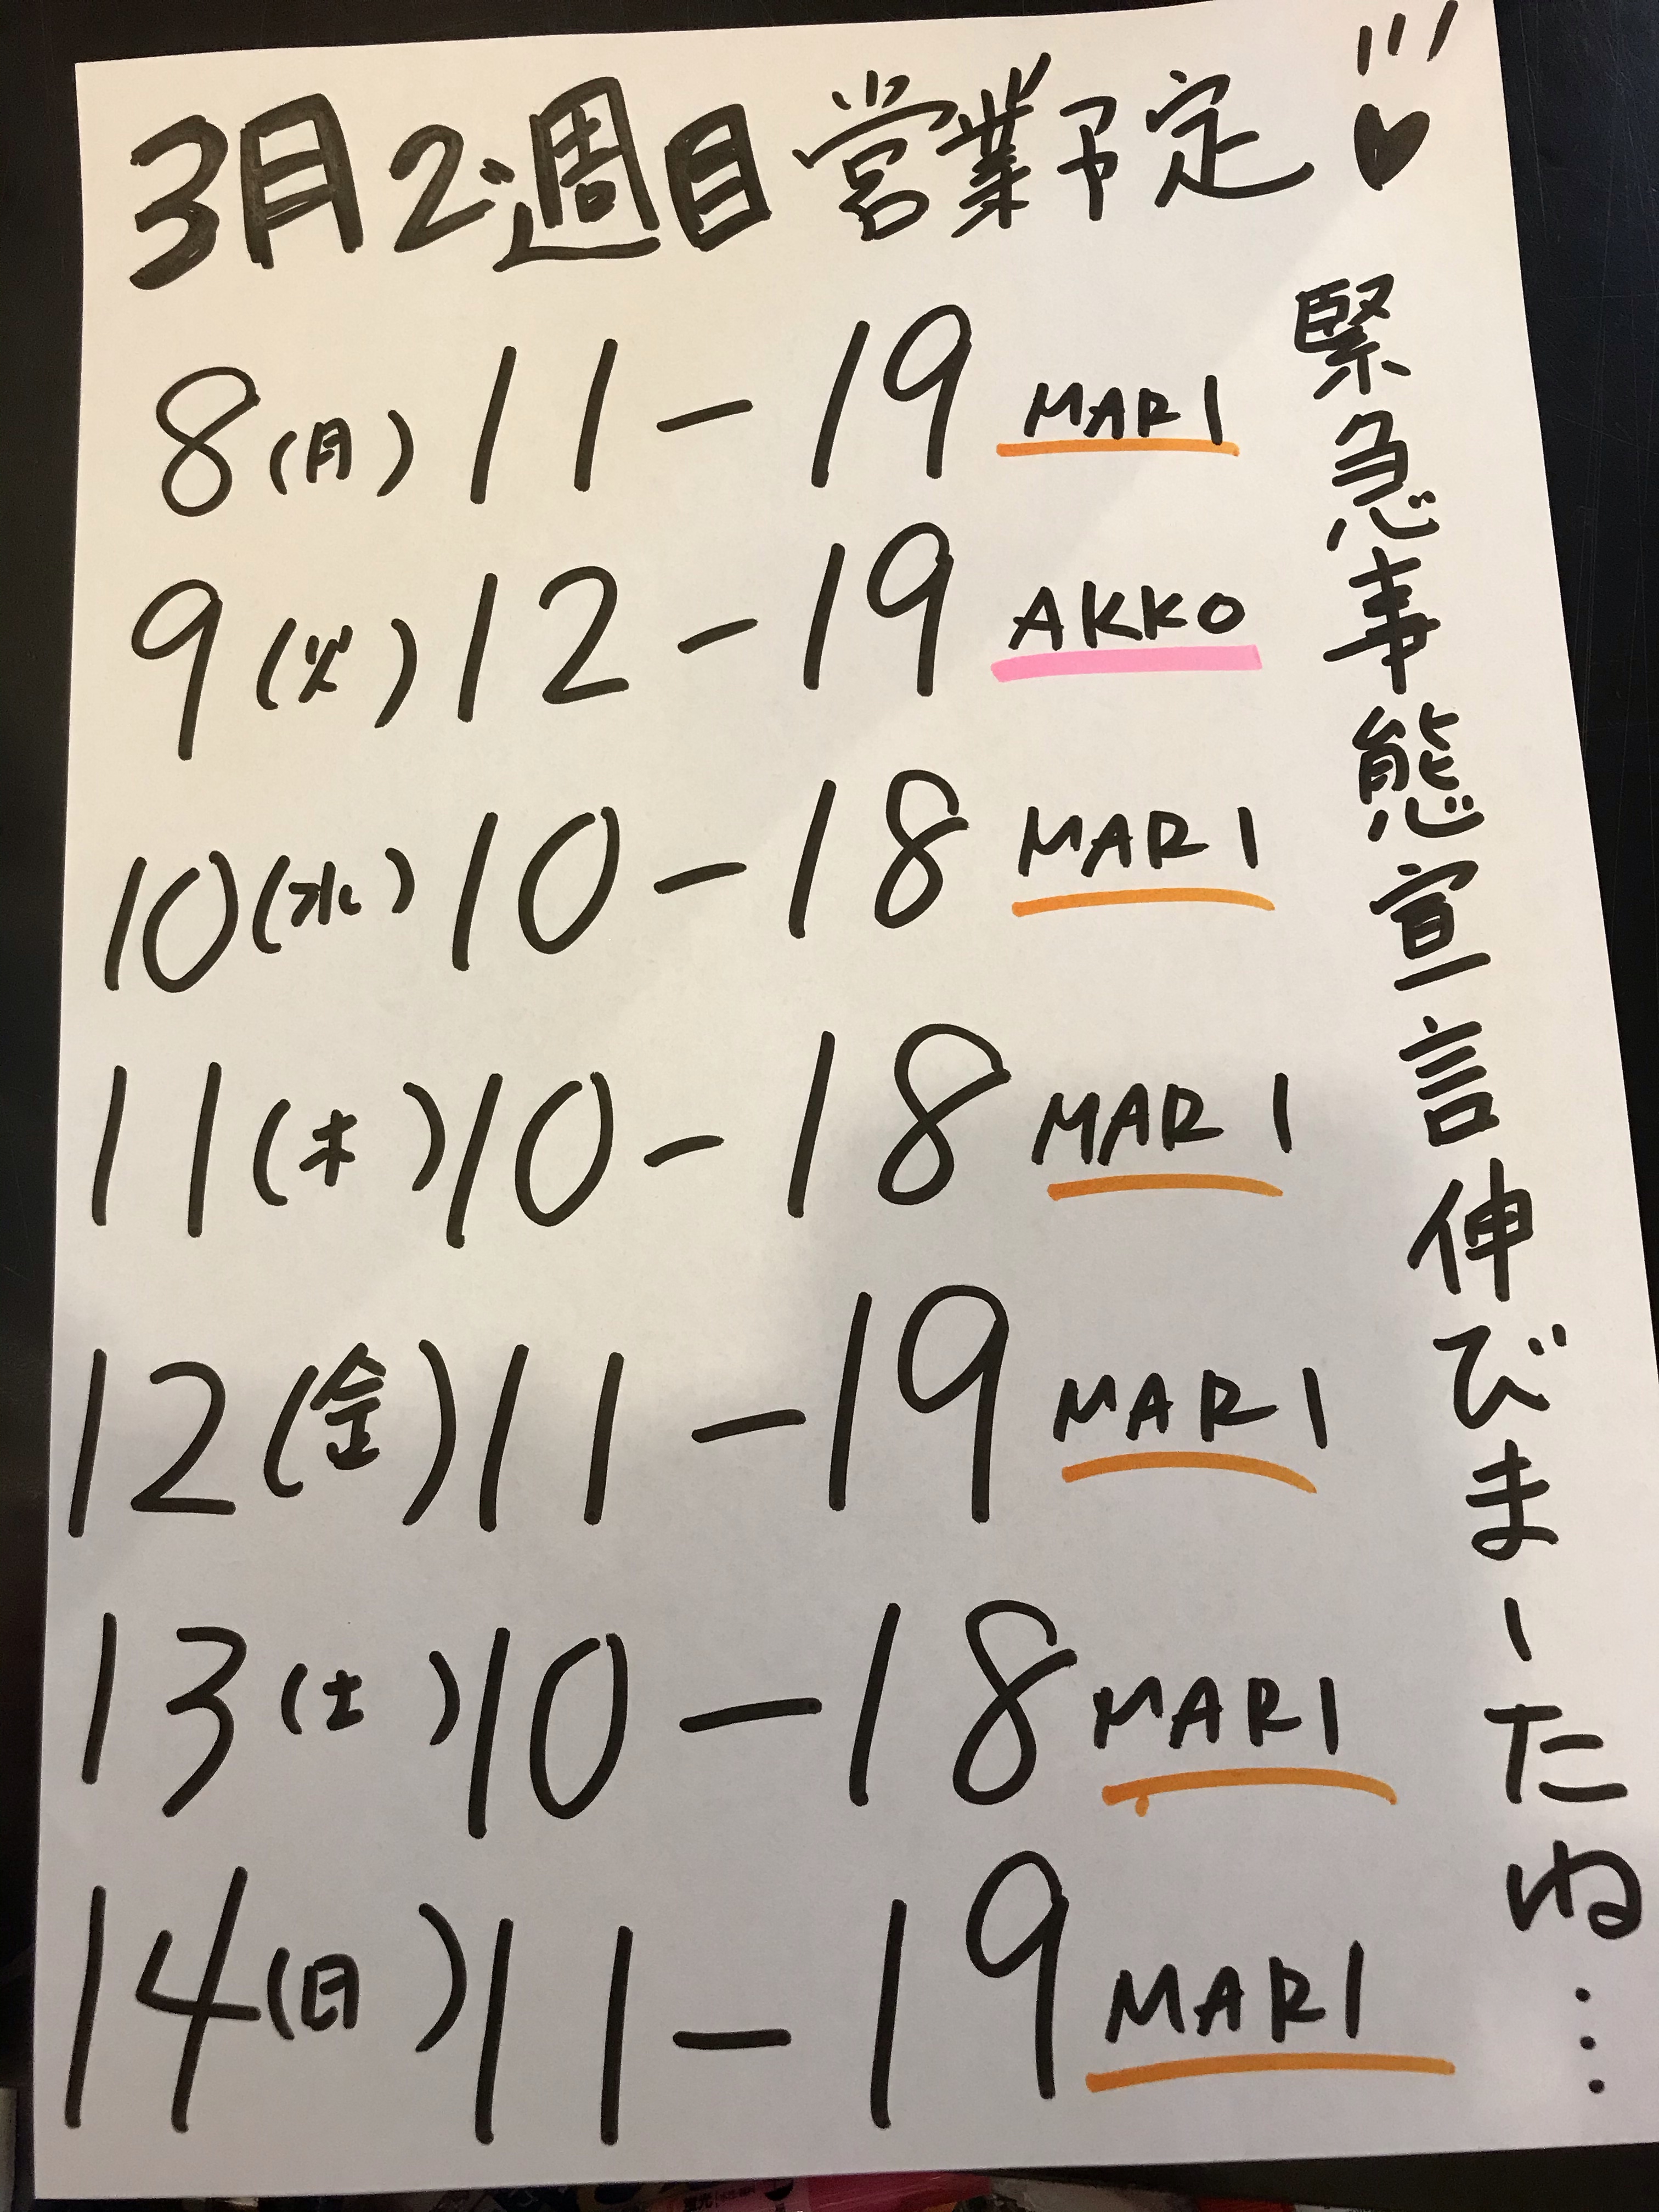 3月2週目営業予定♥
8(月)11-19 MARI
9(火)12-19 AKKO
10(水)10-18 MARI
11(木)10-18 MARI
12(金)11-19 MARI
13(土)10-18 MARI
14(日)11-19 MARI
緊急事態宣言伸びましたね…